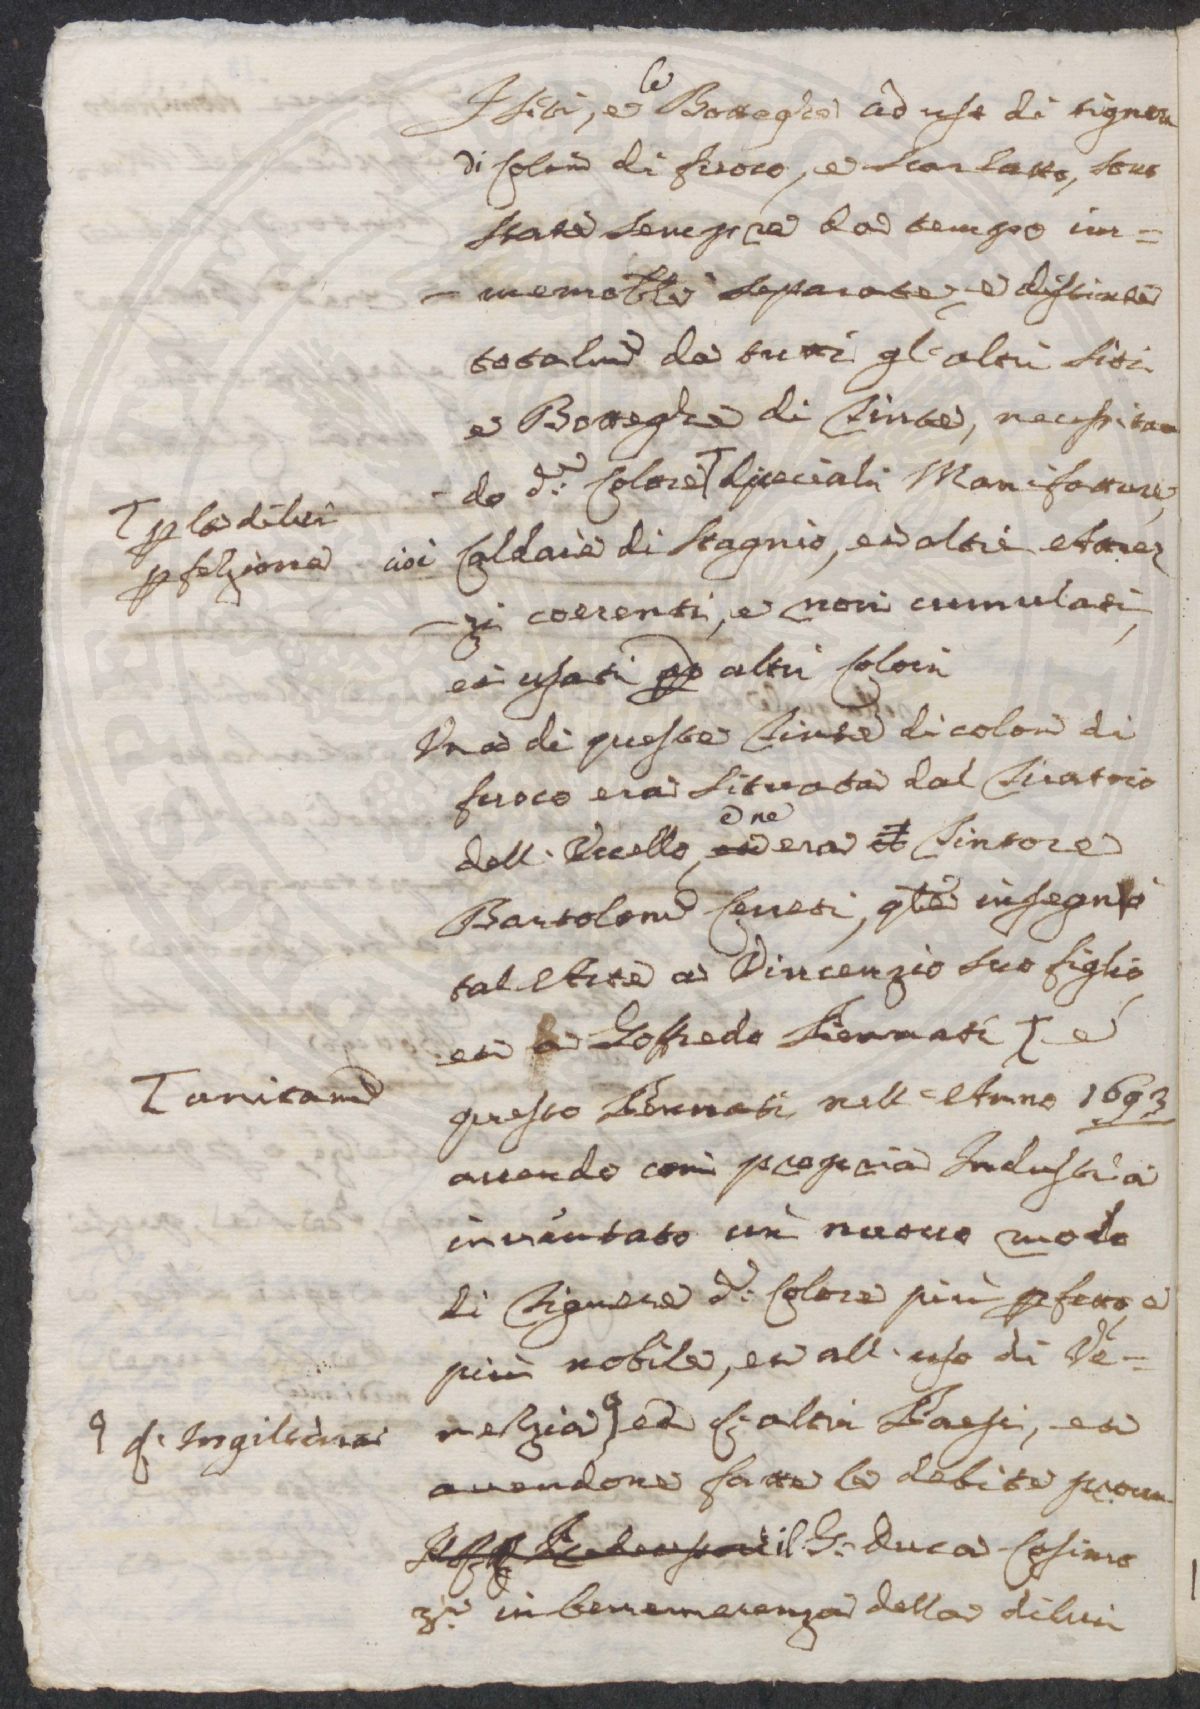 I siti, e le Botteghe ad uso di tignere
di Colore di fuoco, e scarlatto, sono
state sempre da tempo im=
= memorle separate, e distinte
totalmte da tutti gl'altri siti
e Botteghe di Tinte, necessitan
do do: Colore speciali Manifatture,
p la di lui
pfezione
cioè Caldaie di stagnio, et altri Attrez
zi coerenti, e non cumulati,
et usati p altri Colori
Una di queste Tinte di colore di
fuoco era situata dal Tiratoio
dell' Uccello, e ne era Tintore
Bartolomeo Cerresi, qle insegniò
tal Arte a Vincenzio suo figlio,
et a Goffredo Pennati e
unitamte
questo Pennati nell'Anno 1693
auendo con propria Industria
inventato un nuouo modo
di Tignere do: Colore più pfetto, e
più nobile, et all'uso di Ve=
nezia, ed altri Paesi, et
d'Ingilterra
auendone fatte le debite proue
il G: Duca Cosimo
3zo in benemerenza della di lui